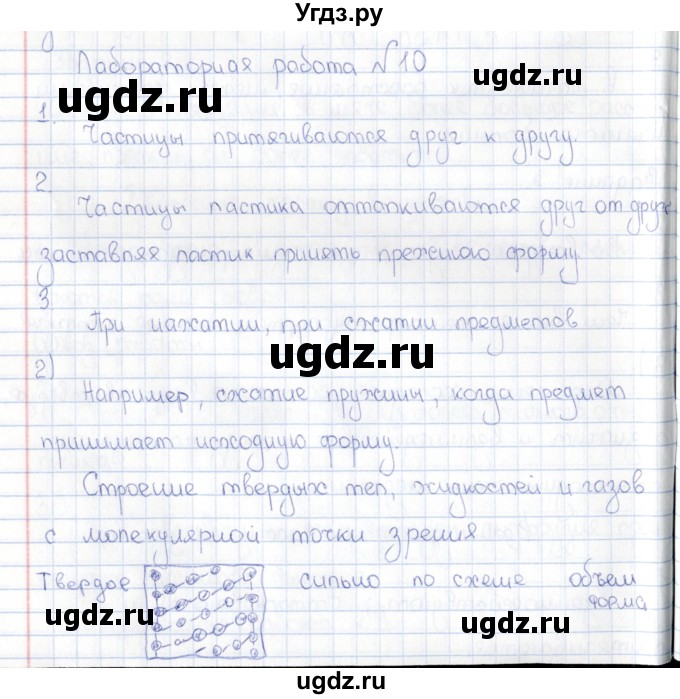 Угдз.ру
Лабораторная работа №10
ugdz.ru
ugdz.ru
1.
Частицы притягиваются друг к другу.
2
Частицы ластика отталкиваются друг от друга
заставляя ластик принять прежнюю форму
3
При нажатии, при сжатии предметов
ugdz.ru
2)
Например, сжатие пружины, когда предмет
принимает исходную форму.
Строение твердых тел, жидкостей и газов
с молекулярной точки зрения
Твердое сильно по схеме объем
форма
ugdz.ru
ugdz.ru